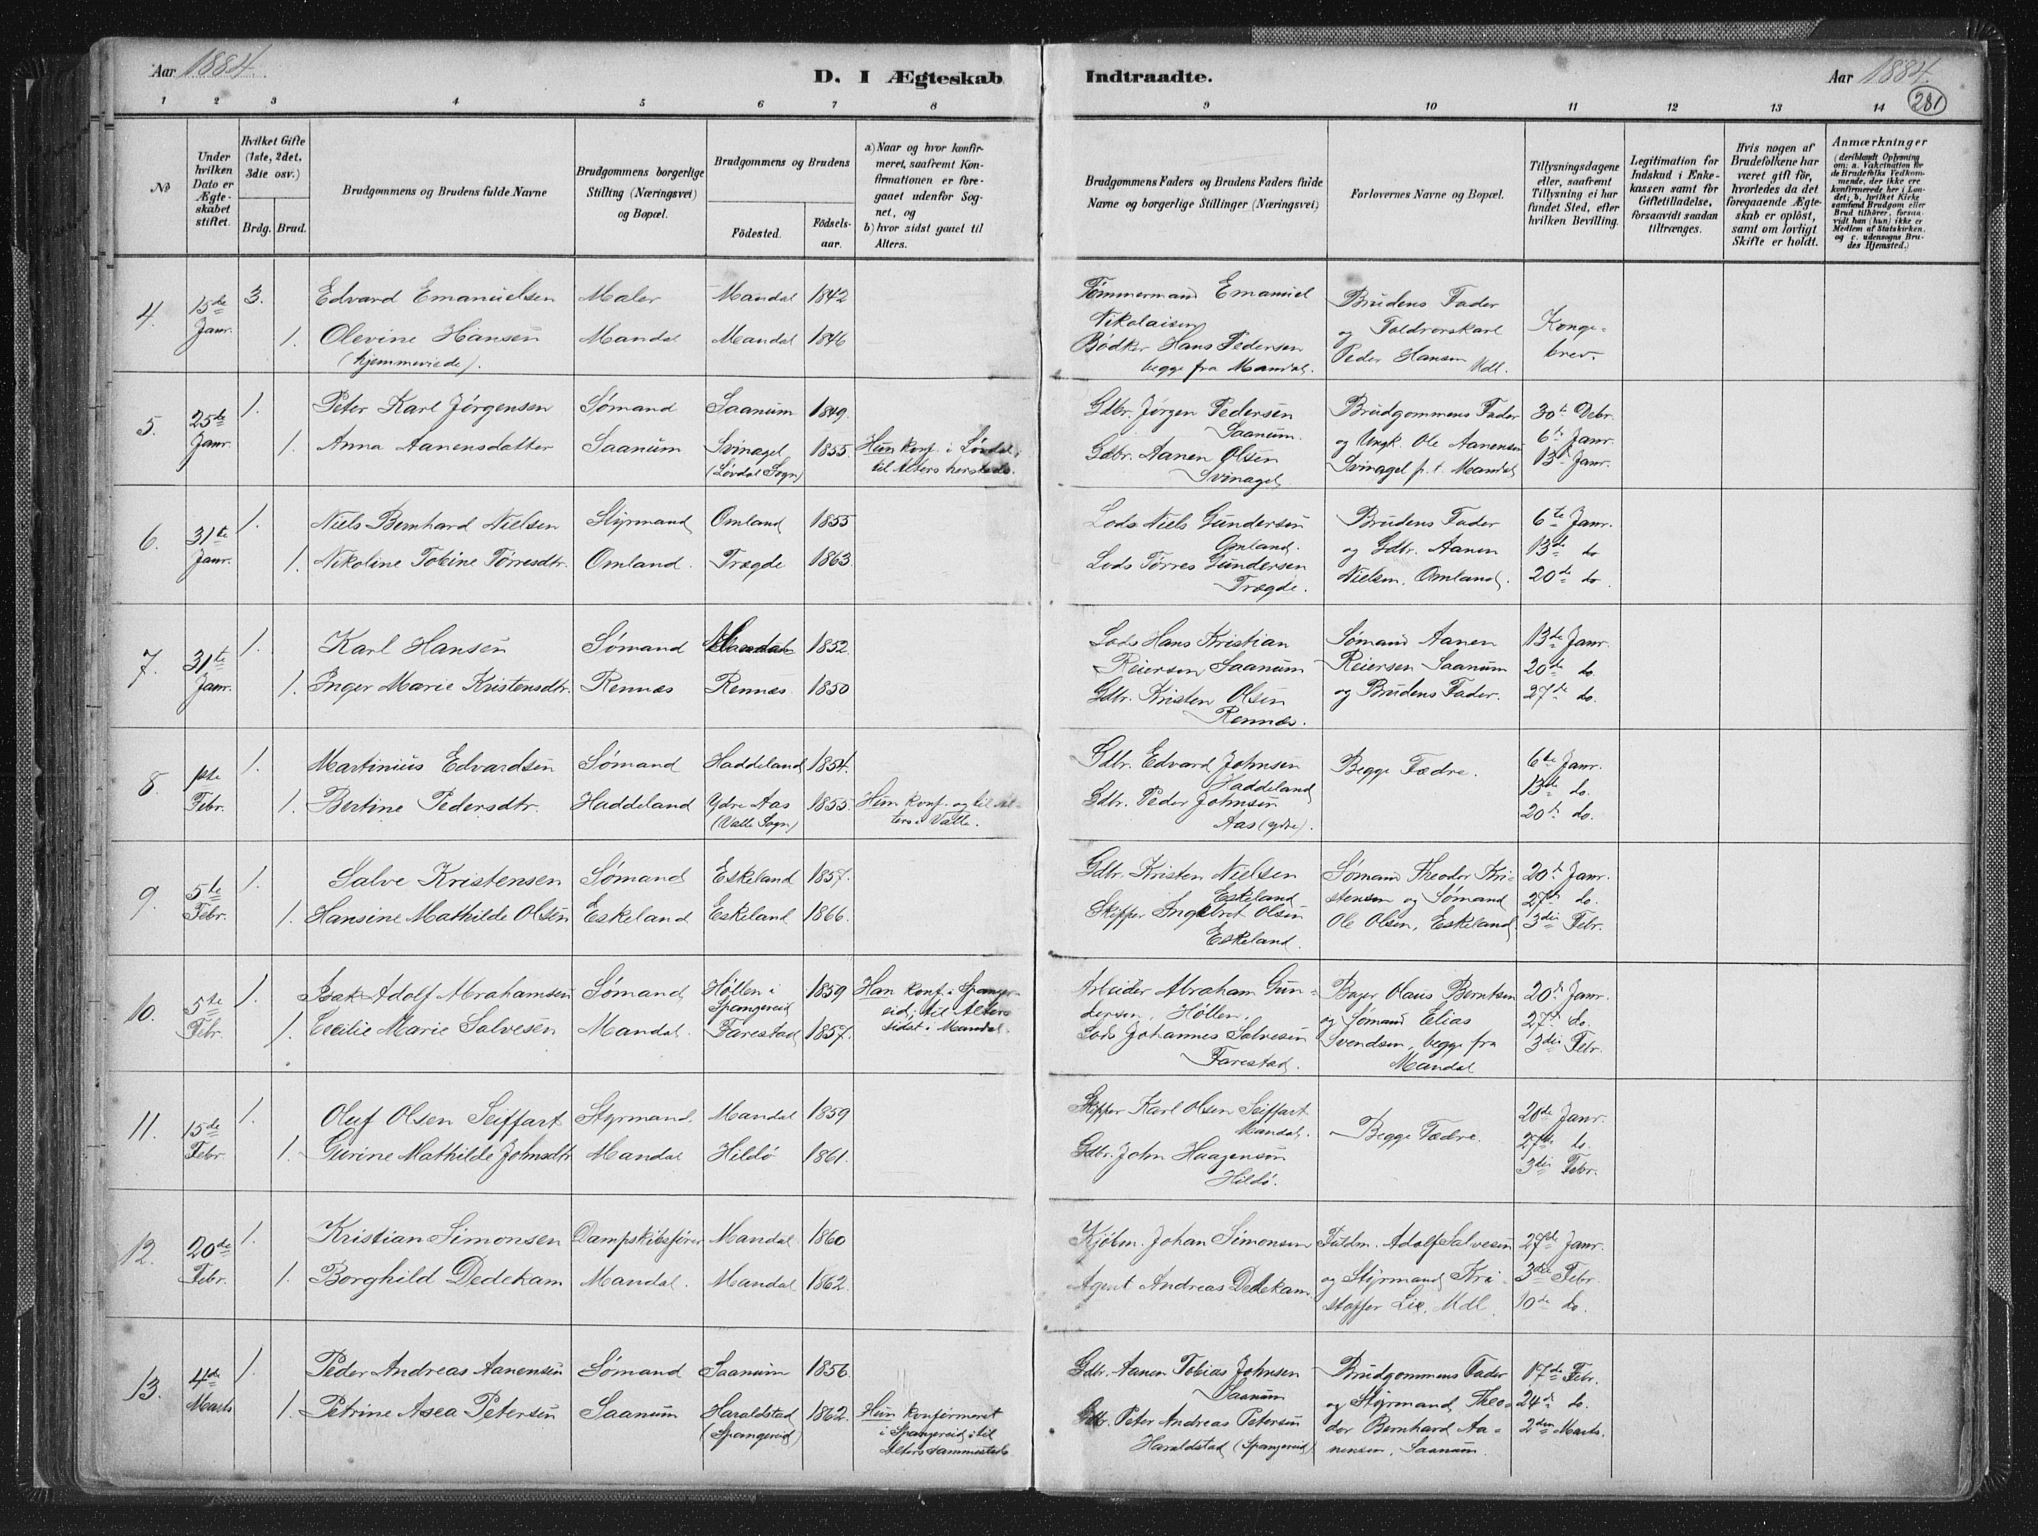 Aar 1884.
D. I Ægteskab
1 2 3 4 5 6 7 8
No
Under hvilken Dato er Ægteskabet stiftet.
Hvilket Gifte (1ste, 2det, 3die osv.)
Brdg. Brud.
Brudgommens og Brudens fulde Navne
Brudgommens borgerlige Stilling (Næringsvei) og Bopæl.
Brudgommens og Brudens
Födested.
Födselsaar.
a) Naar og hvor konfirmeret, saafremt Konfirmationen er foregaaet udenfor Sognet, og
b) hvor sidst gaaet til Alters.
4. 15de Janr. 3. Edvard Emanuelsen Maler Mandal 1842
1. Olevine Hansen Mandal Mandal 1846
(hjemmeviede).
5. 25de Janr. 1. Peter Karl Jörgensen Sømand Saanum 1849.
1. Anna Aanensdatter Saanum Svinagel 1855 Hun konf. i Løvdal,
(Løvdal Sogn) til Alters hersteds.
6. 31te Janr. 1. Niels Bernhard Nielsen Styrmand Omland 1855
1. Nikoline Tobine Tørresdtr. Omland. Trægde 1863.
7. 31te Janr. 1. Karl Hansen Sømand 1852.
1. Inger Marie Kristensdtr. Rennæs Rennæs 1850
8. 1ste Febr. 1. Martinius Edvardsen Sømand Haddeland 1854.
1. Bertine Pedersdtr. Haddeland Ydre Aas 1855. Hun konf. og til Al-
(Valle Sogn) ters i Valle.
9. 5te Febr. 1. Salve Kristensen Sømand Eskeland 1857.
1. Hansine Mathilde Olsen Eskeland Eskeland 1866.
10. 5te Febr. 1. Isak Adolf Abrahamsen Sømand Höllen i Spangereid 1859 Han konf. i Spanger-
eid, til Alters
1. Cecilie Marie Salvesen Mandal. Farestad 1857. sidst i Mandal.
11. 15de Febr. 1. Oluf Olsen Seiffart Styrmand. Mandal 1859
1. Gurine Mathilde Johnsdtr Mandal Hildö 1861.
12. 20de Febr. 1. Kristian Simonsen Dampskibsfører Mandal 1860
1. Borghild Dedekam Mandal. Mandal 1862.
13. 4de Marts 1. Peder Andreas Aanensen Sømand Saanum 1856.
1. Petrine Asea Petersen Saanum Haraldstad 1862. Hun konfirmeret
(Spangereid) i Spangereid, til
Alters sammesteds
Indtraadte.
Aar 1884.
281
9 10 11 12 13 14
Brudgommens Faders og Brudens Faders fulde Navne og borgerlige Stillinger (Næringsvei)
Forlovernes Navne og Bopæl.
Tillysningsdagene eller, saafremt Tillysning ei har fundet Sted, efter hvilken Bevilling.
Legitimation for Indskud i Enkekassen samt for Giftetilladelse, forsaavidt saadan tiltrænges.
Hvis nogen af Brudefolkene har været gift för, hvorledes da det foregaaende Ægteskab er oplöst, samt om lovligt Skifte er holdt.
Anmærkninger
(deriblandt Oplysning om: a. Vakcination for de Brudefolks Vedkommende, der ikke ere konfirmerede her i Landet; b. hvilket Kirkesamfund Brudgom eller Brud tilhörer, forsaavidt han (hun) ikke er Medlem af Statskirken, og c. udensogns Brudes Hjemsted.)
Tömmermand Emanuel Brudens Fader
Nikolaisen og Toldrorskarl Konge-
Bödker Hans Pedersen Peder Hansen Mdl. brev.
begge fra Mandal.
Gdbr. Jörgen Pedersen Brudgommens Fader 30te Debr.
Saanum. og Ungk. Ole Aanensen 6te Janr.
Gdbr. Aanen Olsen Svinagel p. t. Mandal 13de Janr.
Svinagel
Lods Niels Gundersen Brudens Fader 6te Janr.
Omland. og Gdbr. Aanen 13de do
Lods Tørres Gundersen Nielsen, Omland. 20de do
Trægde.
Lods Hans Kristian Sømand Aanen 13de Janr.
Reiersen Saanum Reiersen Saanum 20de do.
Gdbr. Kristen Olsen og Brudens Fader. 27de do.
Rennæs.
Gdbr. Edvard Johnsen Begge Fædre. 6te Janr.
Haddeland 13de do.
Gdbr. Peder Johnsen 20de do.
Aas (ydre).
Gdbr. Kristen Nielsen Sømand Theodor Kri- 20de Janr.
Eskeland stensen og Sømand 27de do.
Skipper Ingebret Olsen Ole Olsen, Eskeland. 3die Febr.
Eskeland.
Arbeider Abraham Gun- Olaus Berntsen 20de Janr.
dersen, Höllen. og Sømand Elias 27de do.
Lods Johannes Salvesen Svendsen, begge fra 3die Febr.
Farestad. Mandal
Skipper Karl Olsen Seiffart 20de Janr.
Mandal. Begge Fædre. 27de do.
Gdbr. John Haagensen 3die Febr.
Hildö.
Kjöbm. Johan Simonsen Fuldm. Adolf Salvesen 27de Janr.
Agent Andreas Dedekam. og Styrmand Kri- 3die Febr.
stoffer Lie, Mdl. 10de do.
Gdbr. Aanen Tobias Johnsen Brudgommens Fader 17de Febr.
Saanum og Styrmand Theo- 24de do.
Gdbr. Peter Andreas Petersen dor Bernhard Aa- 2den Marts.
Haraldstad (Spangereid) nensen, Saanum.